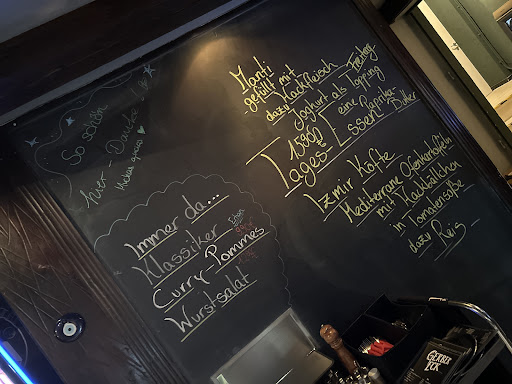 So schön
hier - Danke
Immer da...
Klassiker
Curry Pommes
Wurstsalat
Manti - Freitag
- gefüllt mit
Hackfleisch
dazu Joghurt als Topping
15,90€ eine Paprika
Butter
Tages Essen
Izmir Köfte
Mediterrane Ofenkartoffeln
mit Hackbällchen
in Tomatensoße
dazu Reis
GERBER
ECK